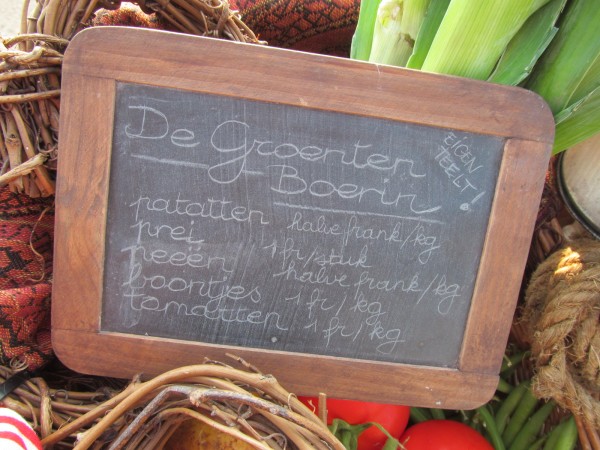 De Groenten
Boerin
EIGEN
TEELT!
patatten halve frank/kg
prei 1 fr/stuk
peeën halve frank/kg
boontjes 1 fr/kg
tomatten 1 fr/kg